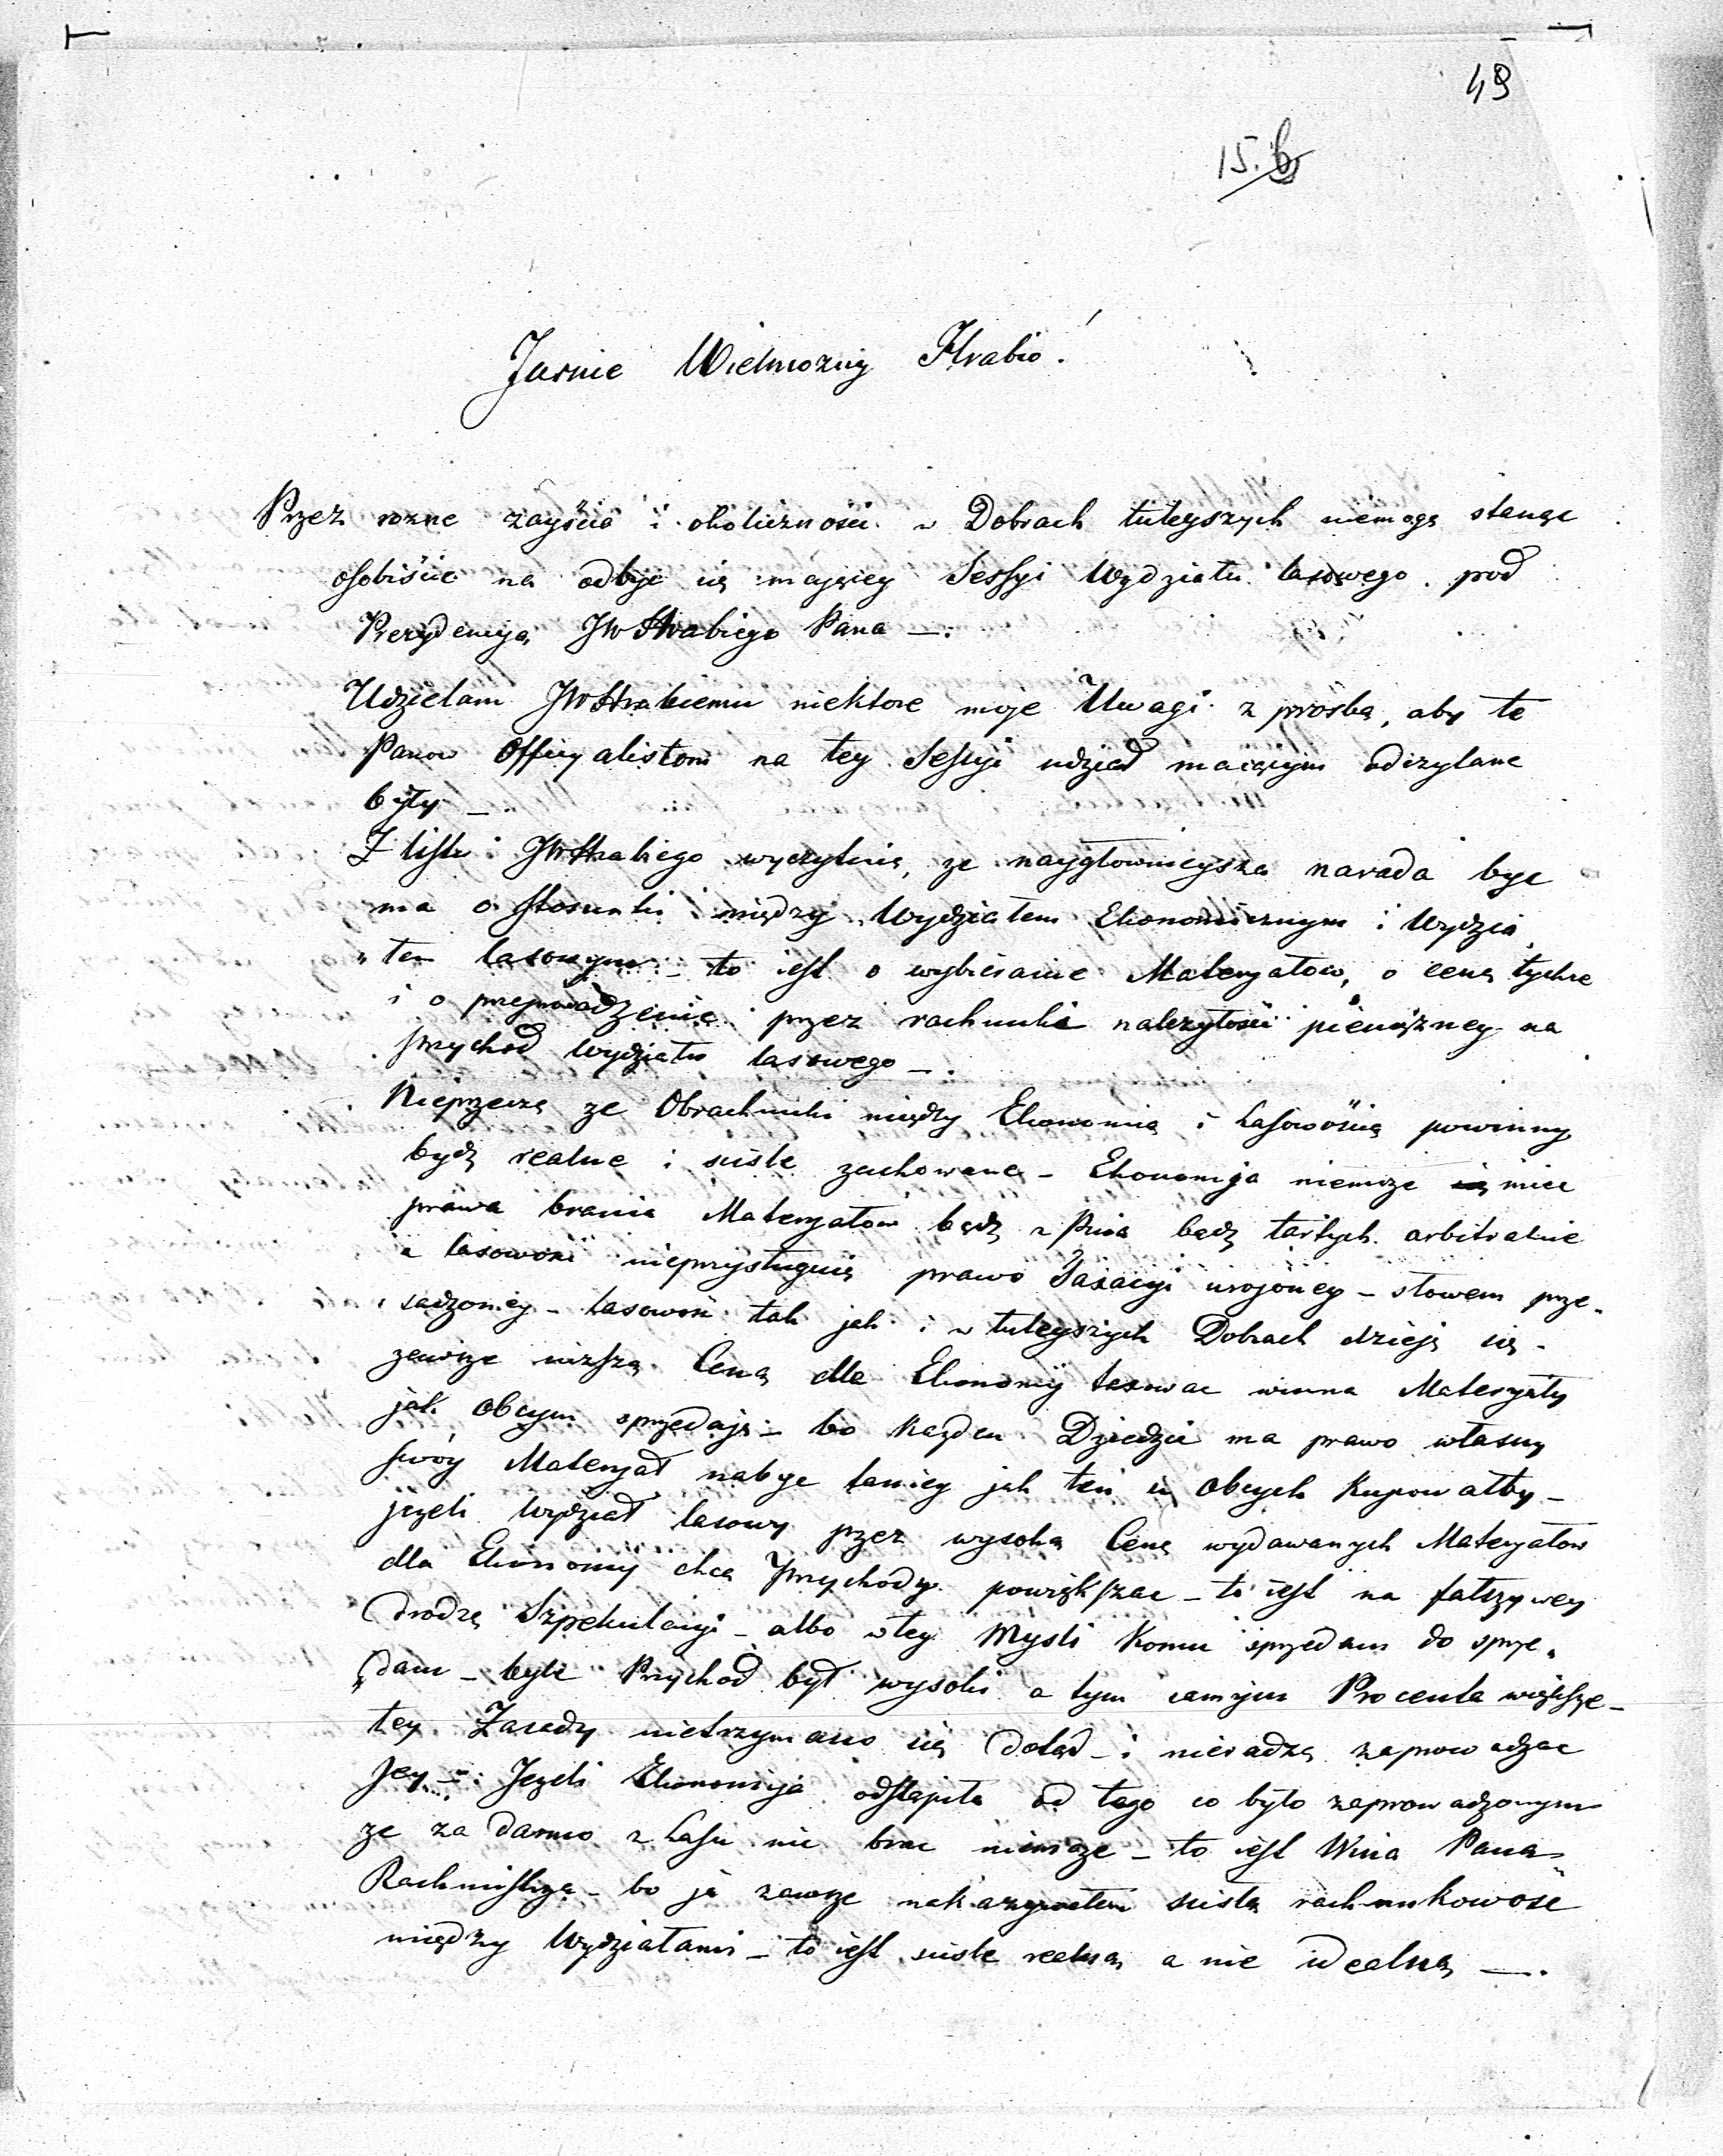 49
15. b
Jasnie Wielmozny Hrabio!
Przez rozne zayścia i okoliczności w Dobrach tuteyszych niemogą stanąc
osobiście na odbyc się maiącey Sessyi Wydziału lasowego pod
Prezydencyą JWHrabiego Pana —.
Udzielam JWHrabiemu niektore moje Uwagi z prosbą, aby te
Panow Officyalistom na tey Sessyi udział maiącym odczytane
były —
Z listu JWHrabiego wyczytuię, ze naygłownieysza narada byc
ma o stosunki między Wydziałem Ekonomicznym i Wydzia„
„łem lasowym — to iest o wybieranie Materyałow, o cenę tychze
i o przeprowadzenie przez rachunki nalezytości pienięzney na
przychod Wydziału lasowego —.
Nieprzeczę ze Obrachunki między Ekonomią i Lasowością powinny
bydz realne i scisle zachowane — Ekonomija niemoze miec
prawa brania Materyałow bądz z Pnia bądz tartych arbitralnie
a lasowosci nieprzysługuię prawo Taxacyi urojoney — słowem prze„
sadzoney — lasowosc tak jak i w tuteyszych Dobrach dzieje się
zawsze nizszą Cenę dla Ekonomij taxowac winna Materyały
jak obcym sprzedaje — bo kazden Dziedzic ma prawo własny
swóy Materyał nabyc taniey jak ten u obcych kupowałby —
jezeli Wydział lasowy przez wysoką Cenę wydawanych Materyałow
dla Ekonomij chce Przychody powiększac — to iest na fałszywey
drodze Szpekulacyi — albo w tey Mysli komu sprzedam to sprze„
„dam — byle Przychod był wysoki a tym samym Procenta większe —
tey Zasady nietrzymano się dotąd — i nieradzę zaprowadzac
Jey —. Jezeli Ekonomija odstąpiła od tego co było zaprowadzonym
ze za darmo z Lasu nic brac niemoze — to iest Wina Pana
Rachmistrza — bo ja zawsze nakazywałem scisłą rachunkowosc
między Wydziałami — to iest scisle realną a nie idealną —.